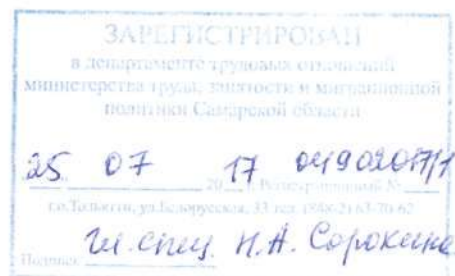 ЗАРЕГИСТРИРОВАН
в департаменте трудовых отношений
министерства труда, занятости и миграционной
политики Самарской области
25 07 17
20 г. Регистрационный №
г.о.Тольятти, ул.Белорусская, 33 тел.
Подпись гл. спец. Н.А. Сорокина